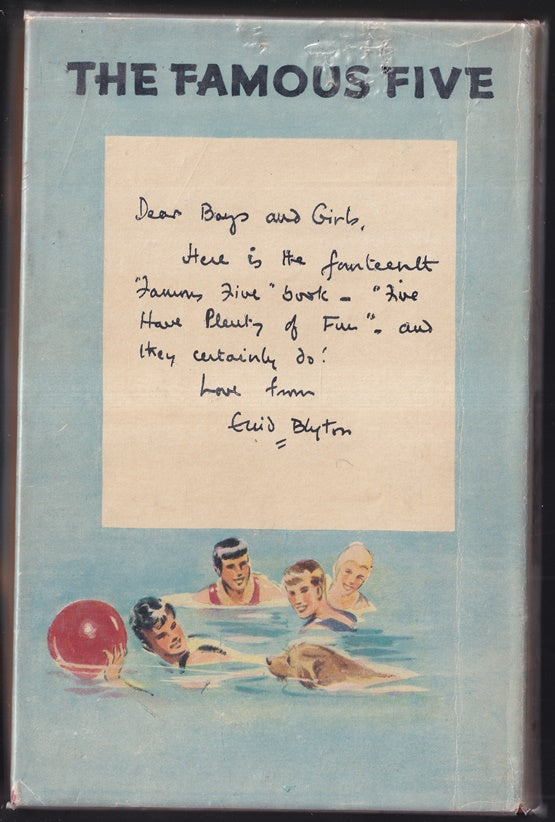 THE FAMOUS FIVE
Dear Boys and Girls,
Here is the fourteenth
"Famous Five" book - "Five
Have Plenty of Fun". and
they certainly do!
Love from
Enid Blyton